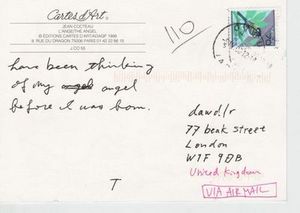 Cartes d'Art
JEAN COCTEAU
L'ANGE/THE ANGEL
© ÉDITIONS CARTES D'ART/ADAGP 1998
9, RUE DU DRAGON 75006 PARIS 01 42 22 86 15
J CO 55
110
have been thinking
of my angel
before I was born.
T
dawdlr
77 beak street
London
W1F 9DB
United Kingdom
VIA AIR MAIL